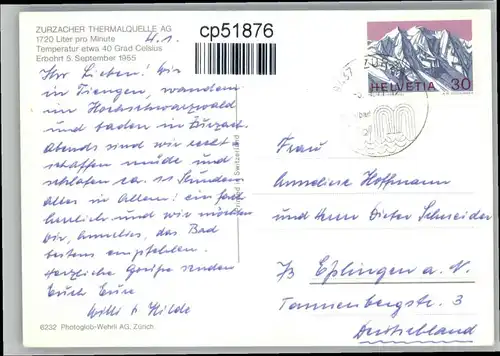 ZURZACHER THERMALQUELLE AG
1720 Liter pro Minute 4.1.
Temperatur etwa 40 Grad Celsius
Erbohrt 5. September 1955
cp51876
Ihr Lieben! Wir
in Tiengen, wandern
im Hochschwarzwald
und baden in Zurzach.
Abends sind wir recht-
schaffen müde und
schlafen ca. 11 Stunden
alles in Allem: einfach
herrlich und wir möchten
Dir, Annelies, das Bad
bestens empfehlen.
Herzliche Grüße senden
Euch Eure
Willi & Hilde
6232 Photoglob-Wehrli AG, Zürich.
Printed in Switzerland
HELVETIA 30
Frau
Anneliese Hoffmann
und Herrn Dieter Schneider
73 Eßlingen a. N.
Tannenbergstr. 3
Deutschland